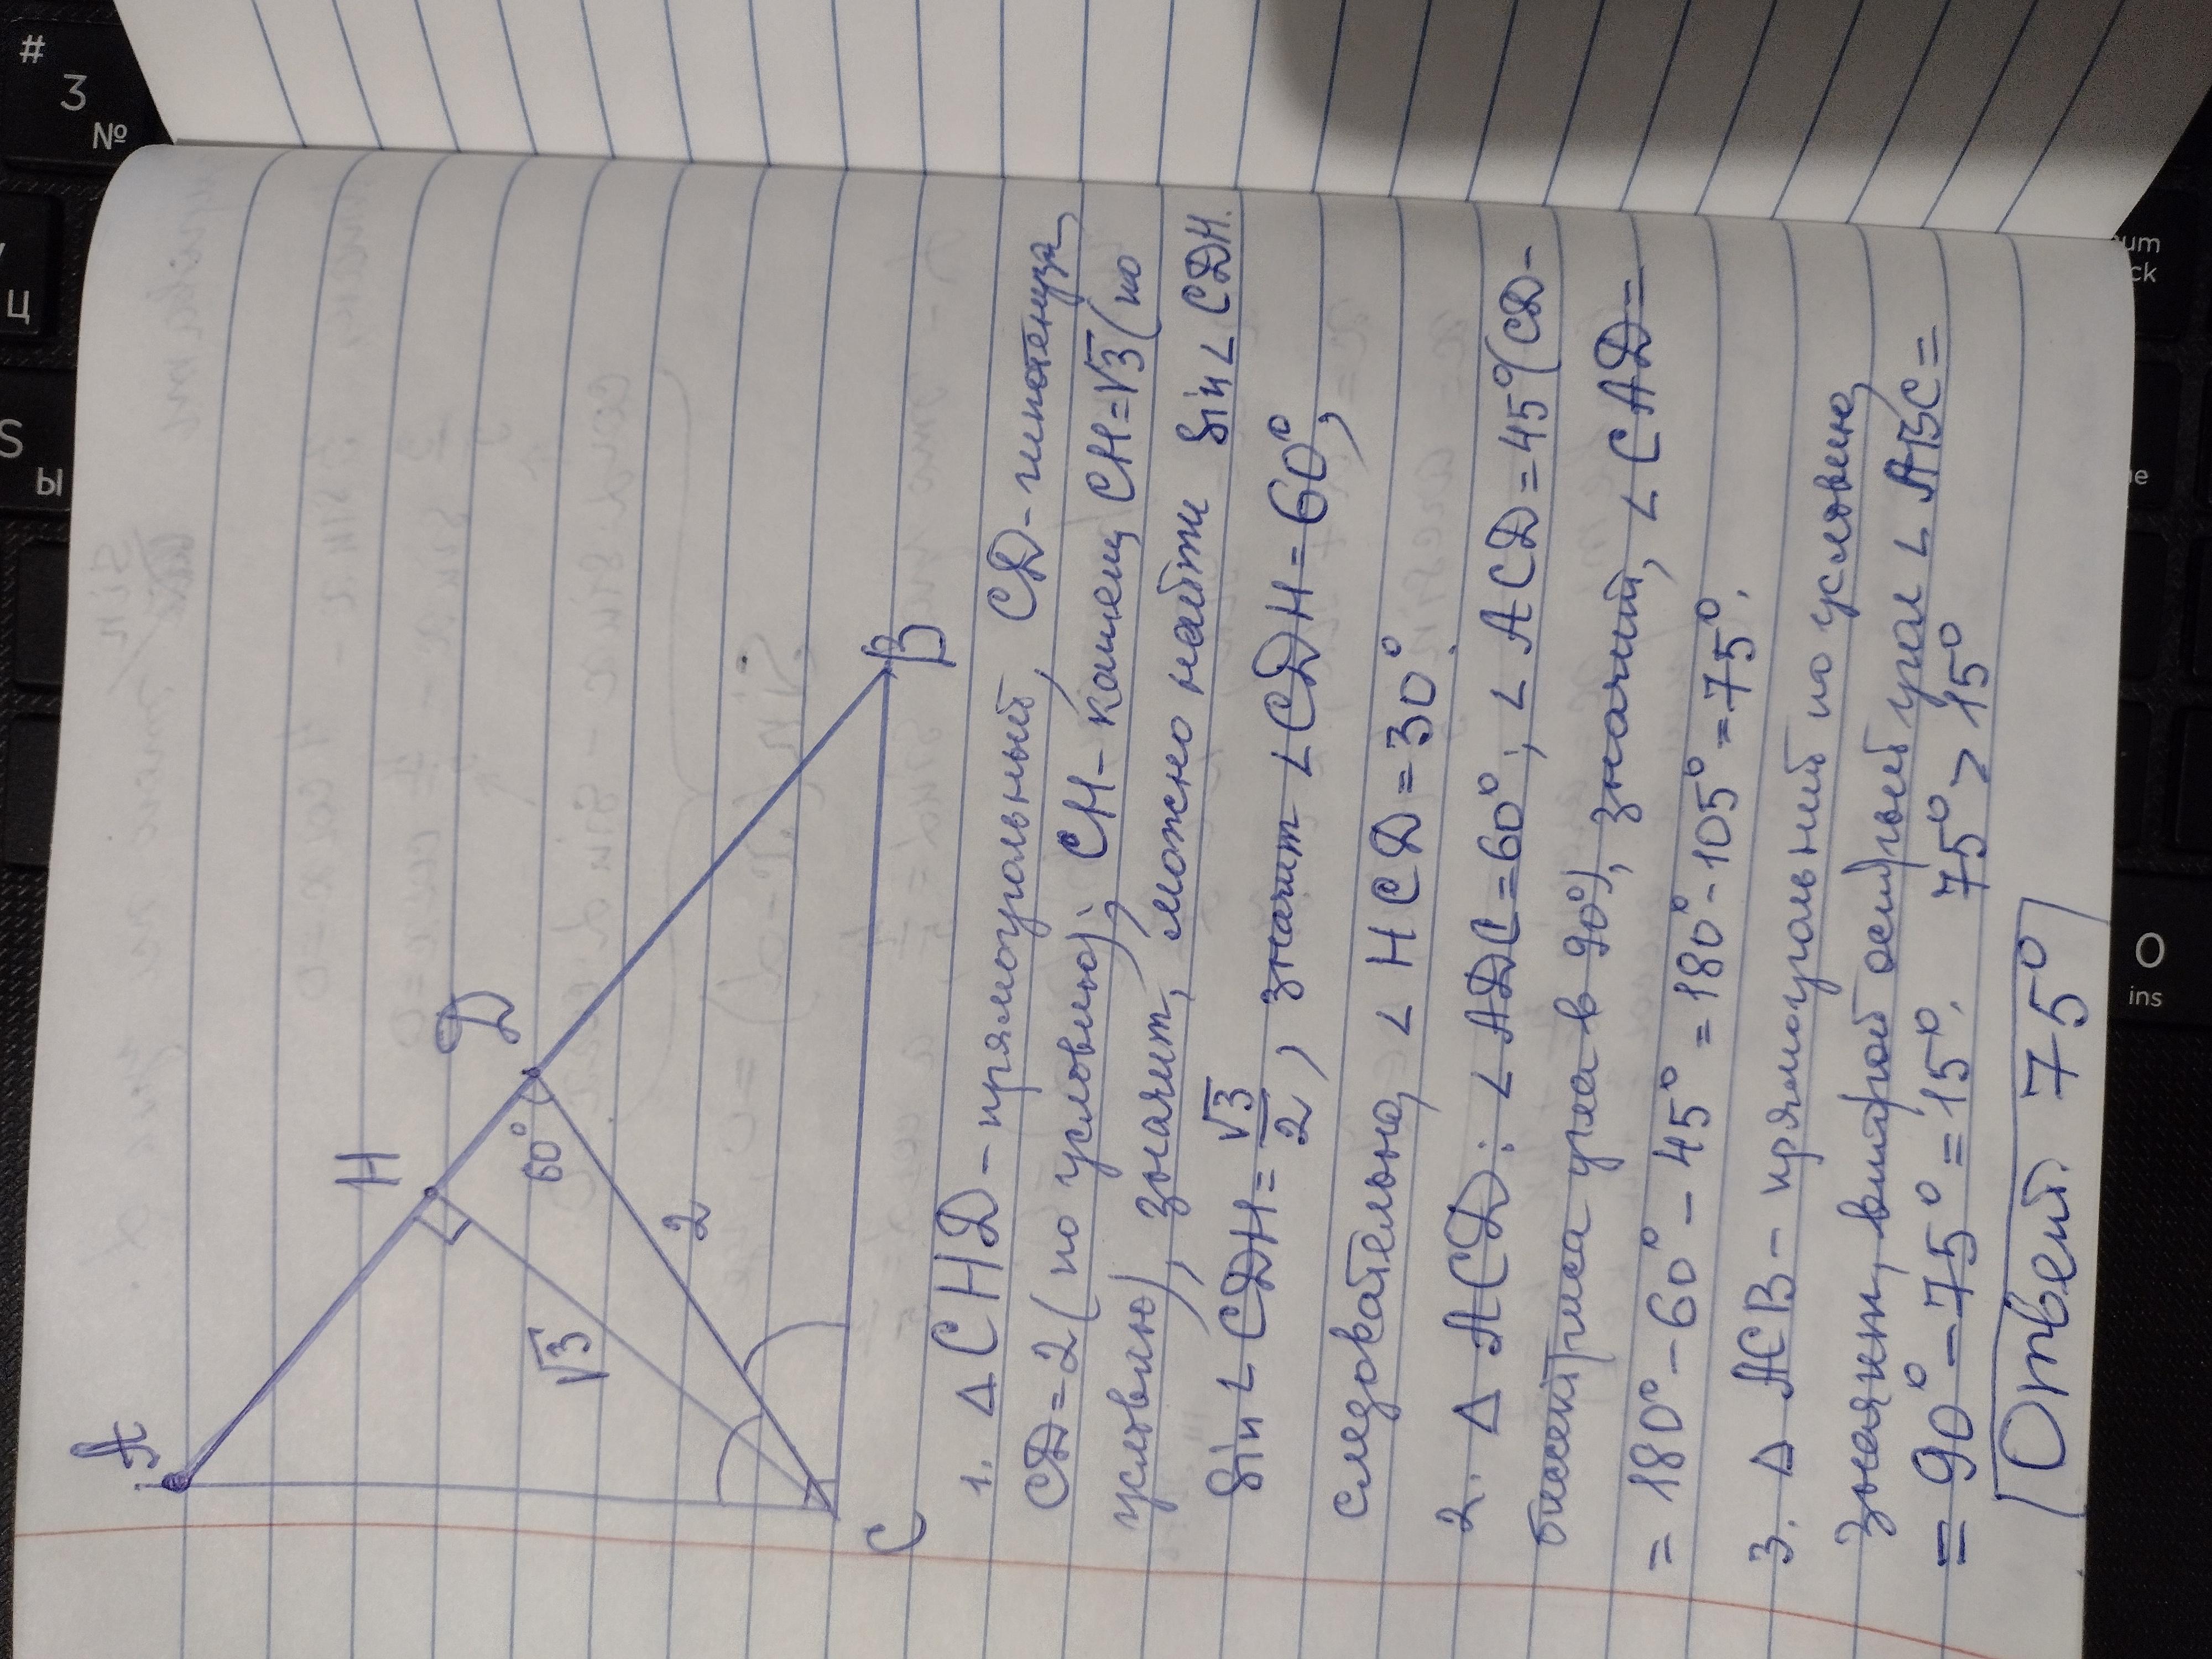 A
H
D
60°
√3
2
C
B
1. Δ CHD - прямоугольный, CD - гипотенуза,
CD = 2 (по условию); CH - катет, CH = √3 (по
условию), значит, можно найти sin ∠ CDH.
sin ∠ CDH = √3/2, значит ∠CDH = 60°,
следовательно, ∠ HCD = 30°
2. Δ ACD: ∠ ADC = 60°; ∠ ACD = 45° (CD -
биссектриса угла в 90°), значит, ∠ CAD =
= 180° - 60° - 45° = 180° - 105° = 75°.
3. Δ ACB - прямоугольный по условию,
значит, второй острый угол ∠ ABC =
= 90° - 75° = 15°. 75° > 15°
Ответ. 75°
#
3
№
Ц
S
Ы
um
ck
e
O
ins